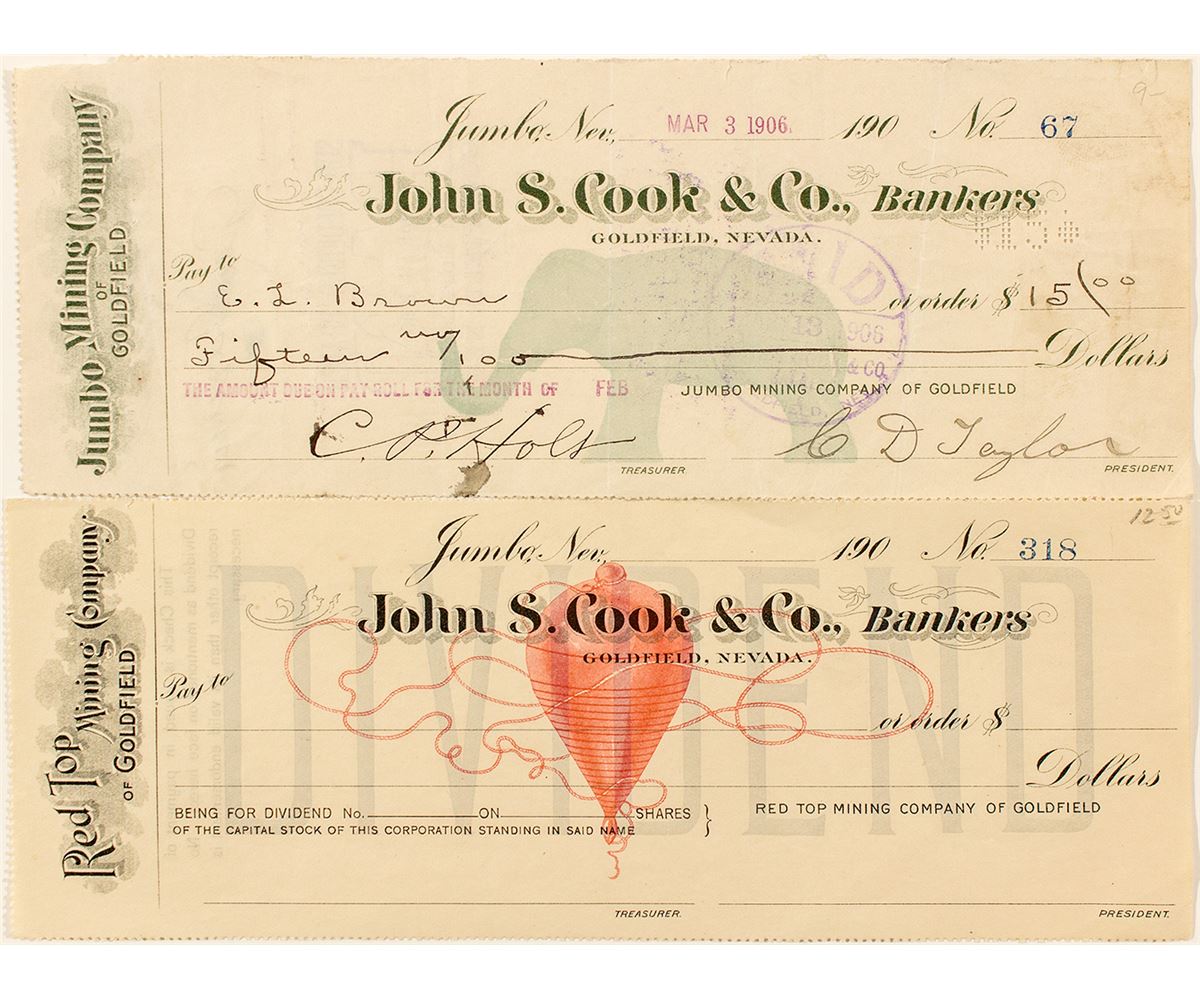 Jumbo Mining Company
OF
GOLDFIELD
9-
Jumbo, Nev., MAR 3 1906. 190 No. 67
John S. Cook & Co., Bankers
GOLDFIELD, NEVADA.
$15$
Pay to
E. L. Brown or order $ 15/00
Fifteen no/100 Dollars
THE AMOUNT DUE ON PAY ROLL FOR THE MONTH OF FEB
JUMBO MINING COMPANY OF GOLDFIELD
PAID
13 1906
& CO.
C. P. Holt
TREASURER.
C D Taylor
PRESIDENT.
Red Top Mining Company
OF GOLDFIELD
12.50
Jumbo, Nev., 190 No. 318
John S. Cook & Co., Bankers
GOLDFIELD, NEVADA.
DIVIDEND
Pay to
or order $
Dollars
BEING FOR DIVIDEND No. ON SHARES }
OF THE CAPITAL STOCK OF THIS CORPORATION STANDING IN SAID NAME
RED TOP MINING COMPANY OF GOLDFIELD
TREASURER.
PRESIDENT.